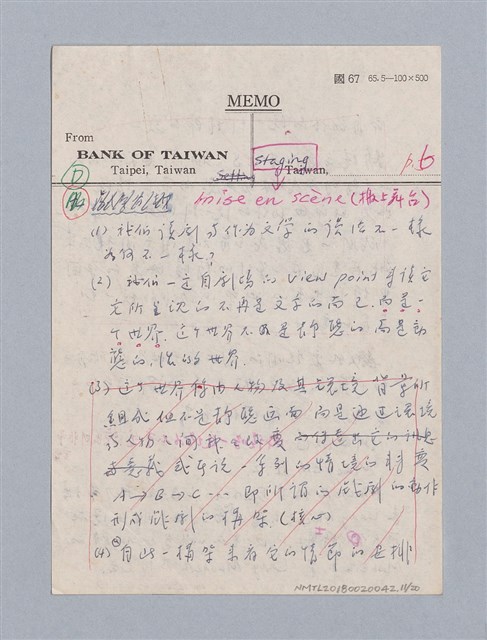 國 67 65. 5—100×500
MEMO
From
BANK OF TAIWAN
Taipei, Taiwan
Setting
staging
Taiwan,
p. 6
D
mise en scène (搬上舞台)
(1) 我們讀劇與作為文學的讀法不一樣
為何不一樣?
(2) 我們一定自劇場的 view point 來讀它
它所呈現的不再是文字的而已，而是一
个世界 这个世界不是靜態的而是動
態的，活的世界.
(3) 这个世界 人物及其環境背景所
組成但不是靜態画面 而是
与人物之間
或者說一系列的情境的轉變
A→B→C… 即所謂的戲劇的動作
形成戲劇的構架. (核心)
(4) 自此一構架來看它的情節的安排
NMTL20180020042, 11/20